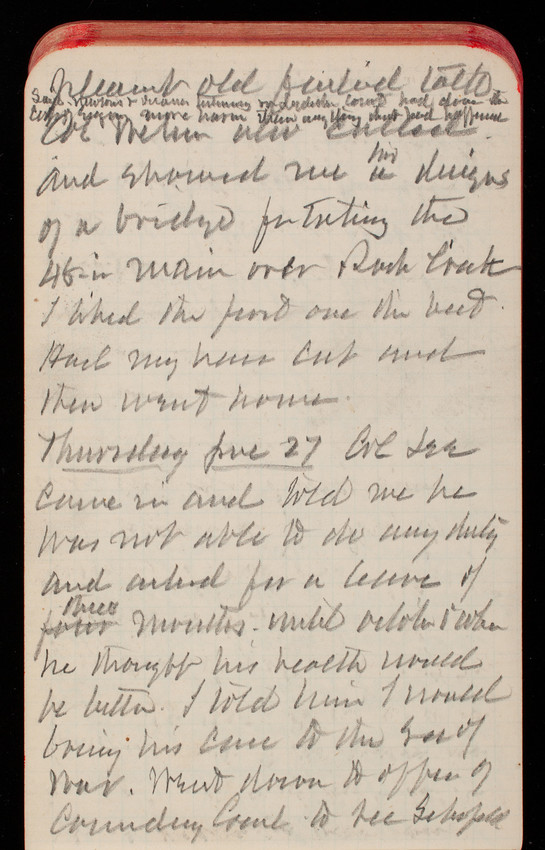 Pleasant old fashiod talk
Says Newtons & had done the
Corps more harm than anything that had happened
Col also called
and showed me his designs
of a bridge for taking the
48 in main over Rock Creek
I liked the first one the best.
Had my hair cut and
then went home.
Thursday June 27 Col Lee
came in and told me he
was not able to do any duty
and asked for a leave of
three months. until october when
he thought his health would
be better. I told him I would
bring his case to the Sec of
War. Went down to office of
Court to see